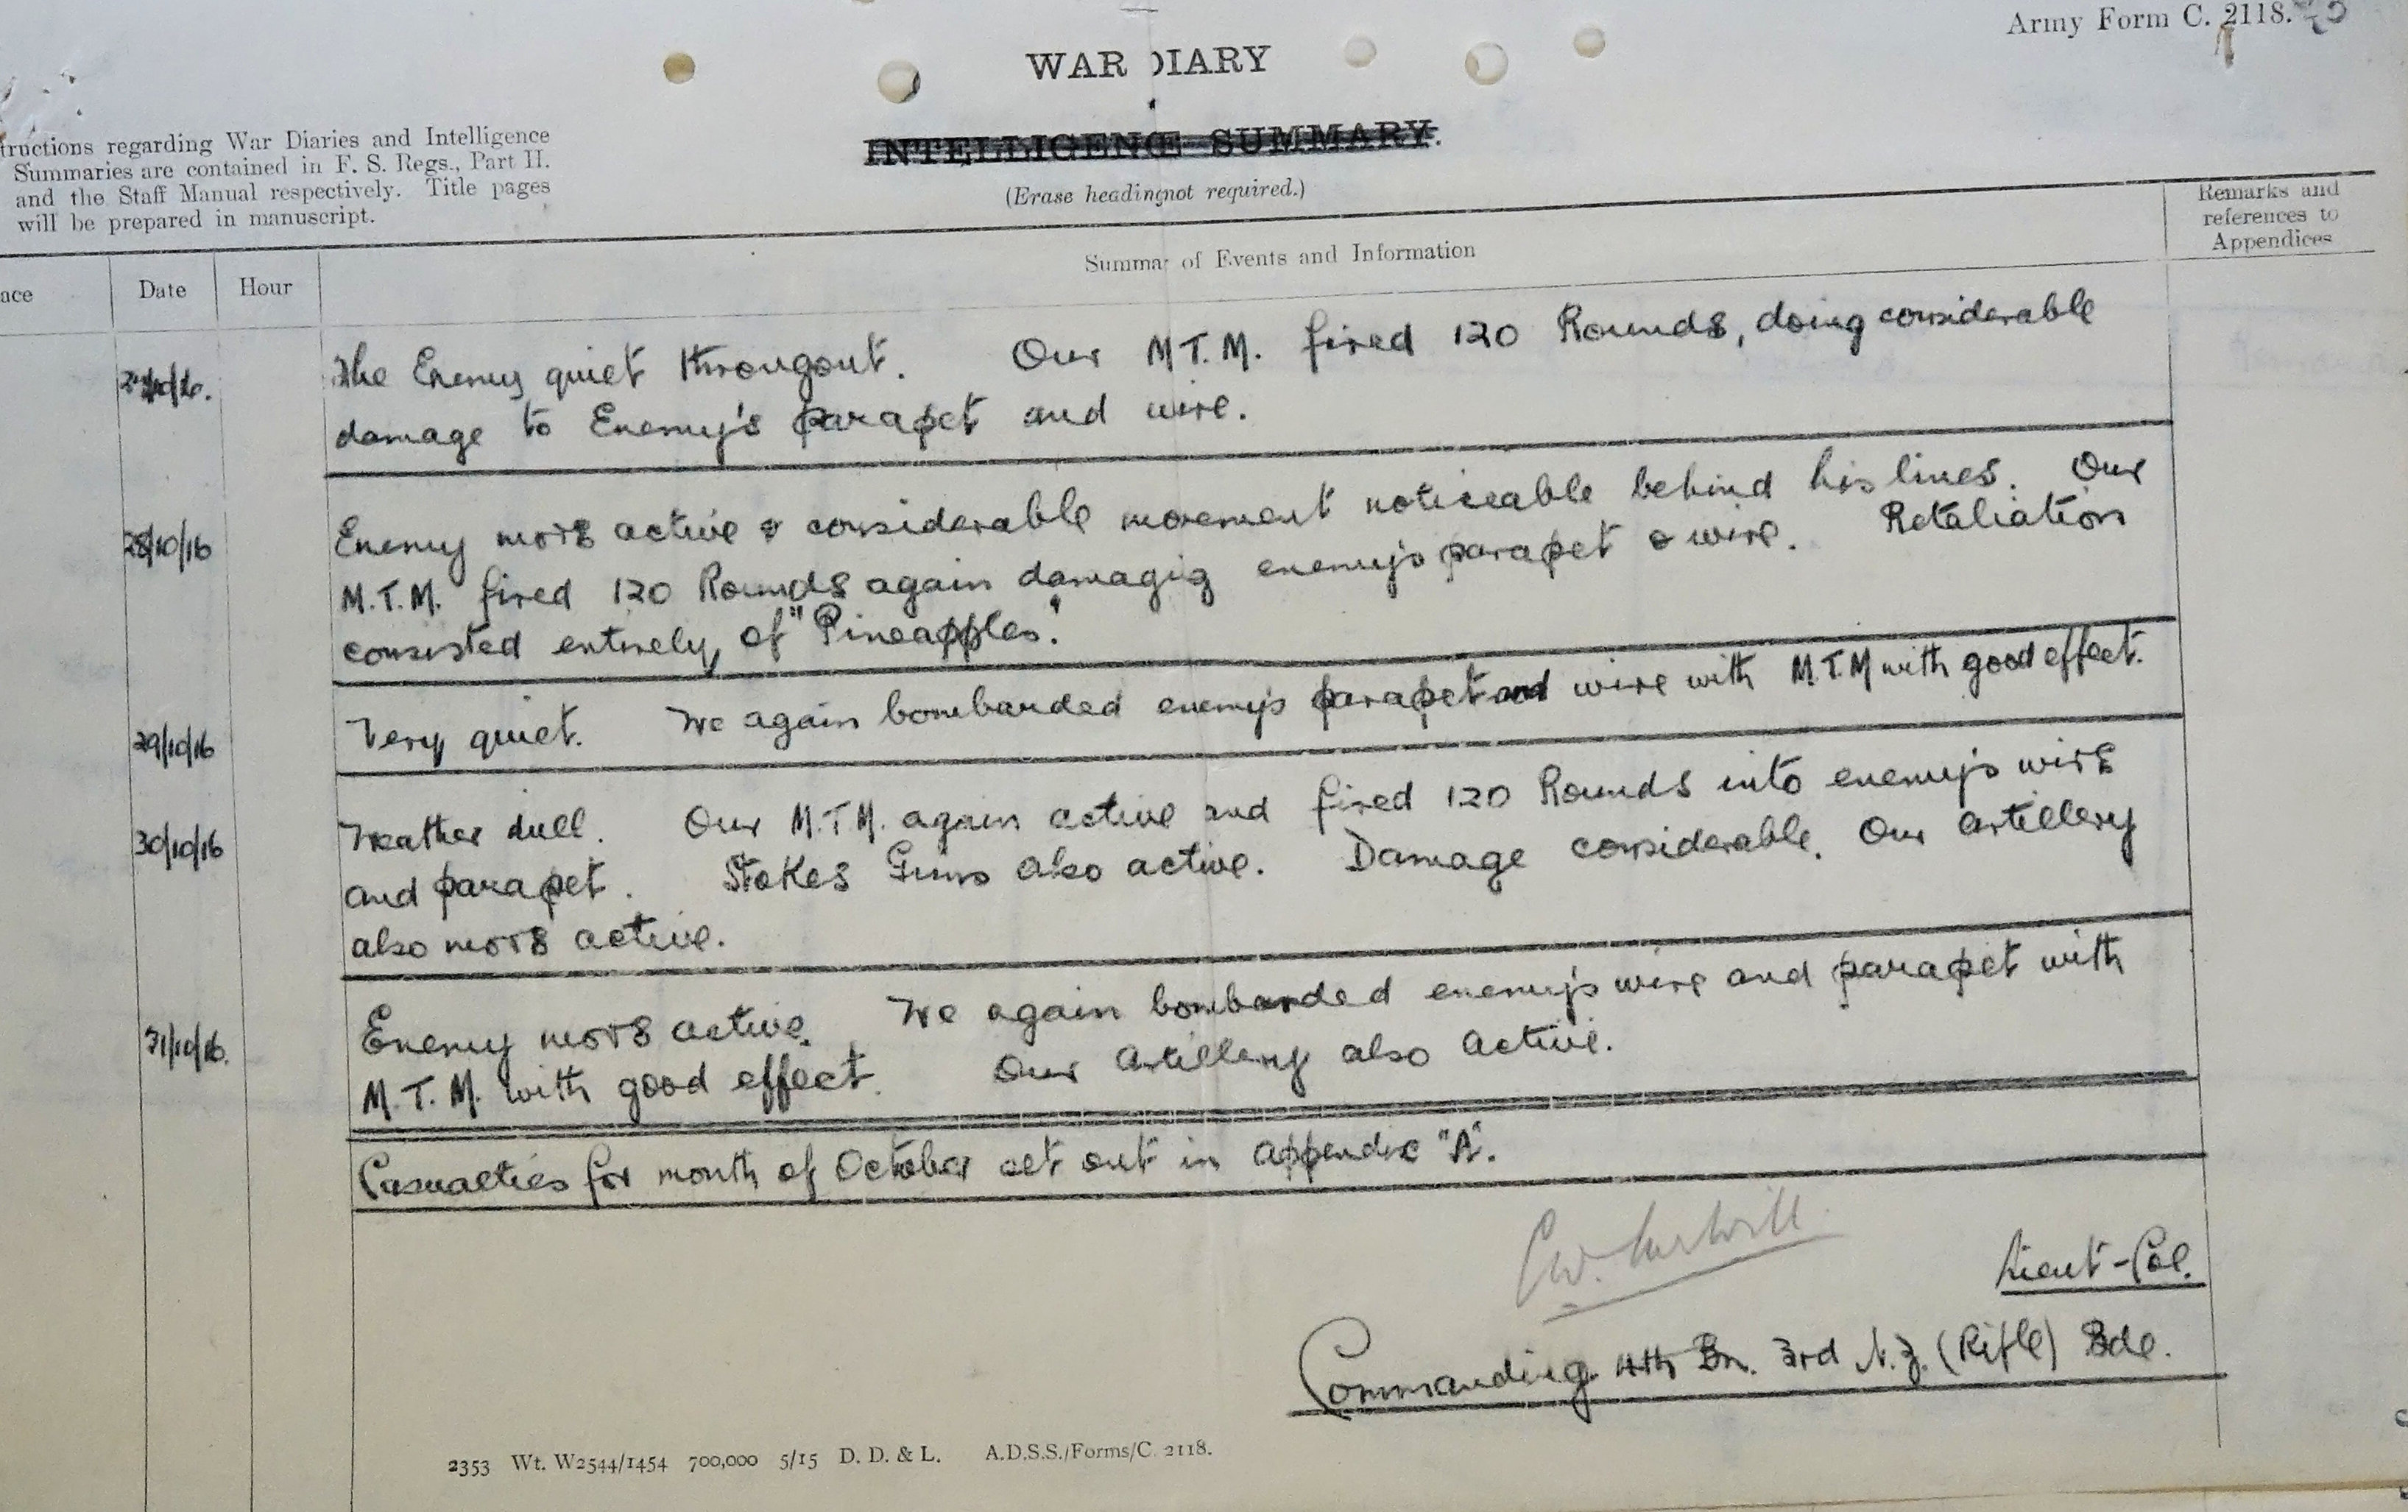 Army Form C. 2118.
WAR DIARY
INTELLIGENCE SUMMARY.
(Erase heading not required.)
tructions regarding War Diaries and Intelligence
Summaries are contained in F. S. Regs., Part II.
and the Staff Manual respectively. Title pages
will be prepared in manuscript.
Remarks and
references to
Appendices
ace
Date
Hour
Summa of Events and Information
The Enemy quiet througout. Our M.T.M. fired 120 Rounds, doing considerable
damage to Enemy's parapet and wire.
28/10/16
Enemy more active & considerable movement noticeable behind his lines. Our
M.T.M. fired 120 Rounds again damagig enemy's parapet & wire. Retaliation
consisted entirely of "Pineapples."
29/10/16
Very quiet. We again bombarded enemy's parapet and wire with M.T.M with good effect.
30/10/16
Weather dull. Our M.T.M. again active and fired 120 Rounds into enemy's wire
and parapet. Stokes Guns also active. Damage considerable. Our Artillery
also more active.
31/10/16.
Enemy more active. We again bombarded enemy's wire and parapet with
M.T.M. with good effect. Our Artillery also active.
Casualties for month of October set out in appendix "A".
Lieut-Col.
Commanding 4th Bn. 3rd N.Z. (Rifle) Bde.
2353 Wt. W2544/1454 700,000 5/15 D. D. & L. A.D.S.S./Forms/C. 2118.